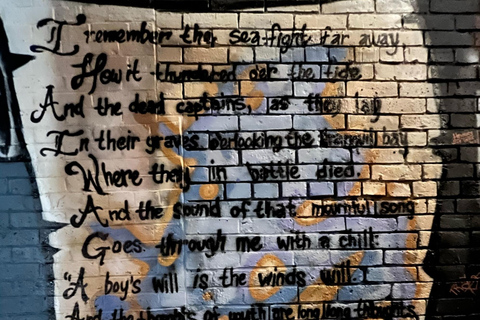 I remember the sea-fight far away
How it thundered o'er the tide
And the dead captains, as they lay
In their graves, o'erlooking the tranquil bay
Where they in battle died.
And the sound of that mournful song
Goes through me with a chill:
"A boy's will is the winds will
And the thoughts of youth are long long thoughts.